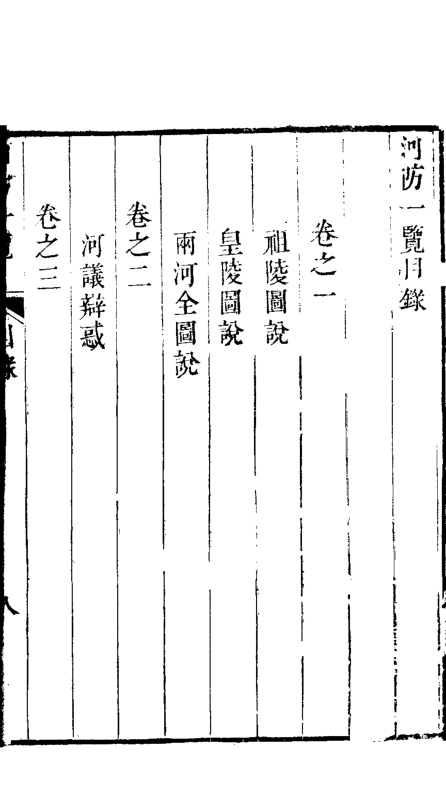 河防一覽目錄
卷之一
祖陵圖說
皇陵圖說
兩河全圖說
卷之二
河議辯惑
卷之三